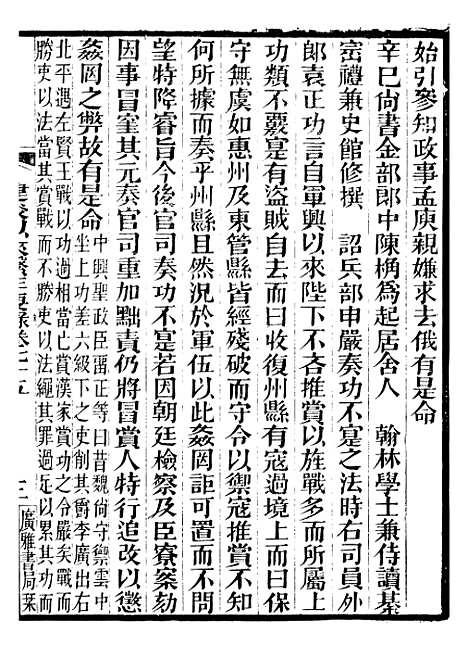 始引參知政事孟庾親嫌求去俄有是命
辛巳尚書金部郎中陳桷為起居舍人　翰林學士兼侍讀綦
密禮兼史館修撰　詔兵部申嚴奏功不寔之法時右司員外
郎袁正功言自軍興以來陛下不吝推賞以旌戰多而所屬上
功類不覈寔有盜賊自去而曰收復州縣有寇過境上而曰保
守無虞如惠州及東管縣皆經殘破而守令以禦寇推賞不知
何所據而奏乎州縣且然況於軍伍以此姦罔詎可置而不問
望特降睿旨今後官司奏功不寔若因朝廷檢察及臣寮案劾
因事冒窒其元奏官司重加黜責仍將冒賞人特行追改以懲
姦罔之弊故有是命
中興聖政臣畱正等曰昔魏尙守禦雲中
坐上功差六級下之吏削其爵李廣出右
北平遇左賢王戰以功過相當亡賞漢家賞功之令嚴矣戰而
勝吏以法當其賞戰而不勝吏以法繩其罪過近以累其功而
卷七十五
廣雅書局栞